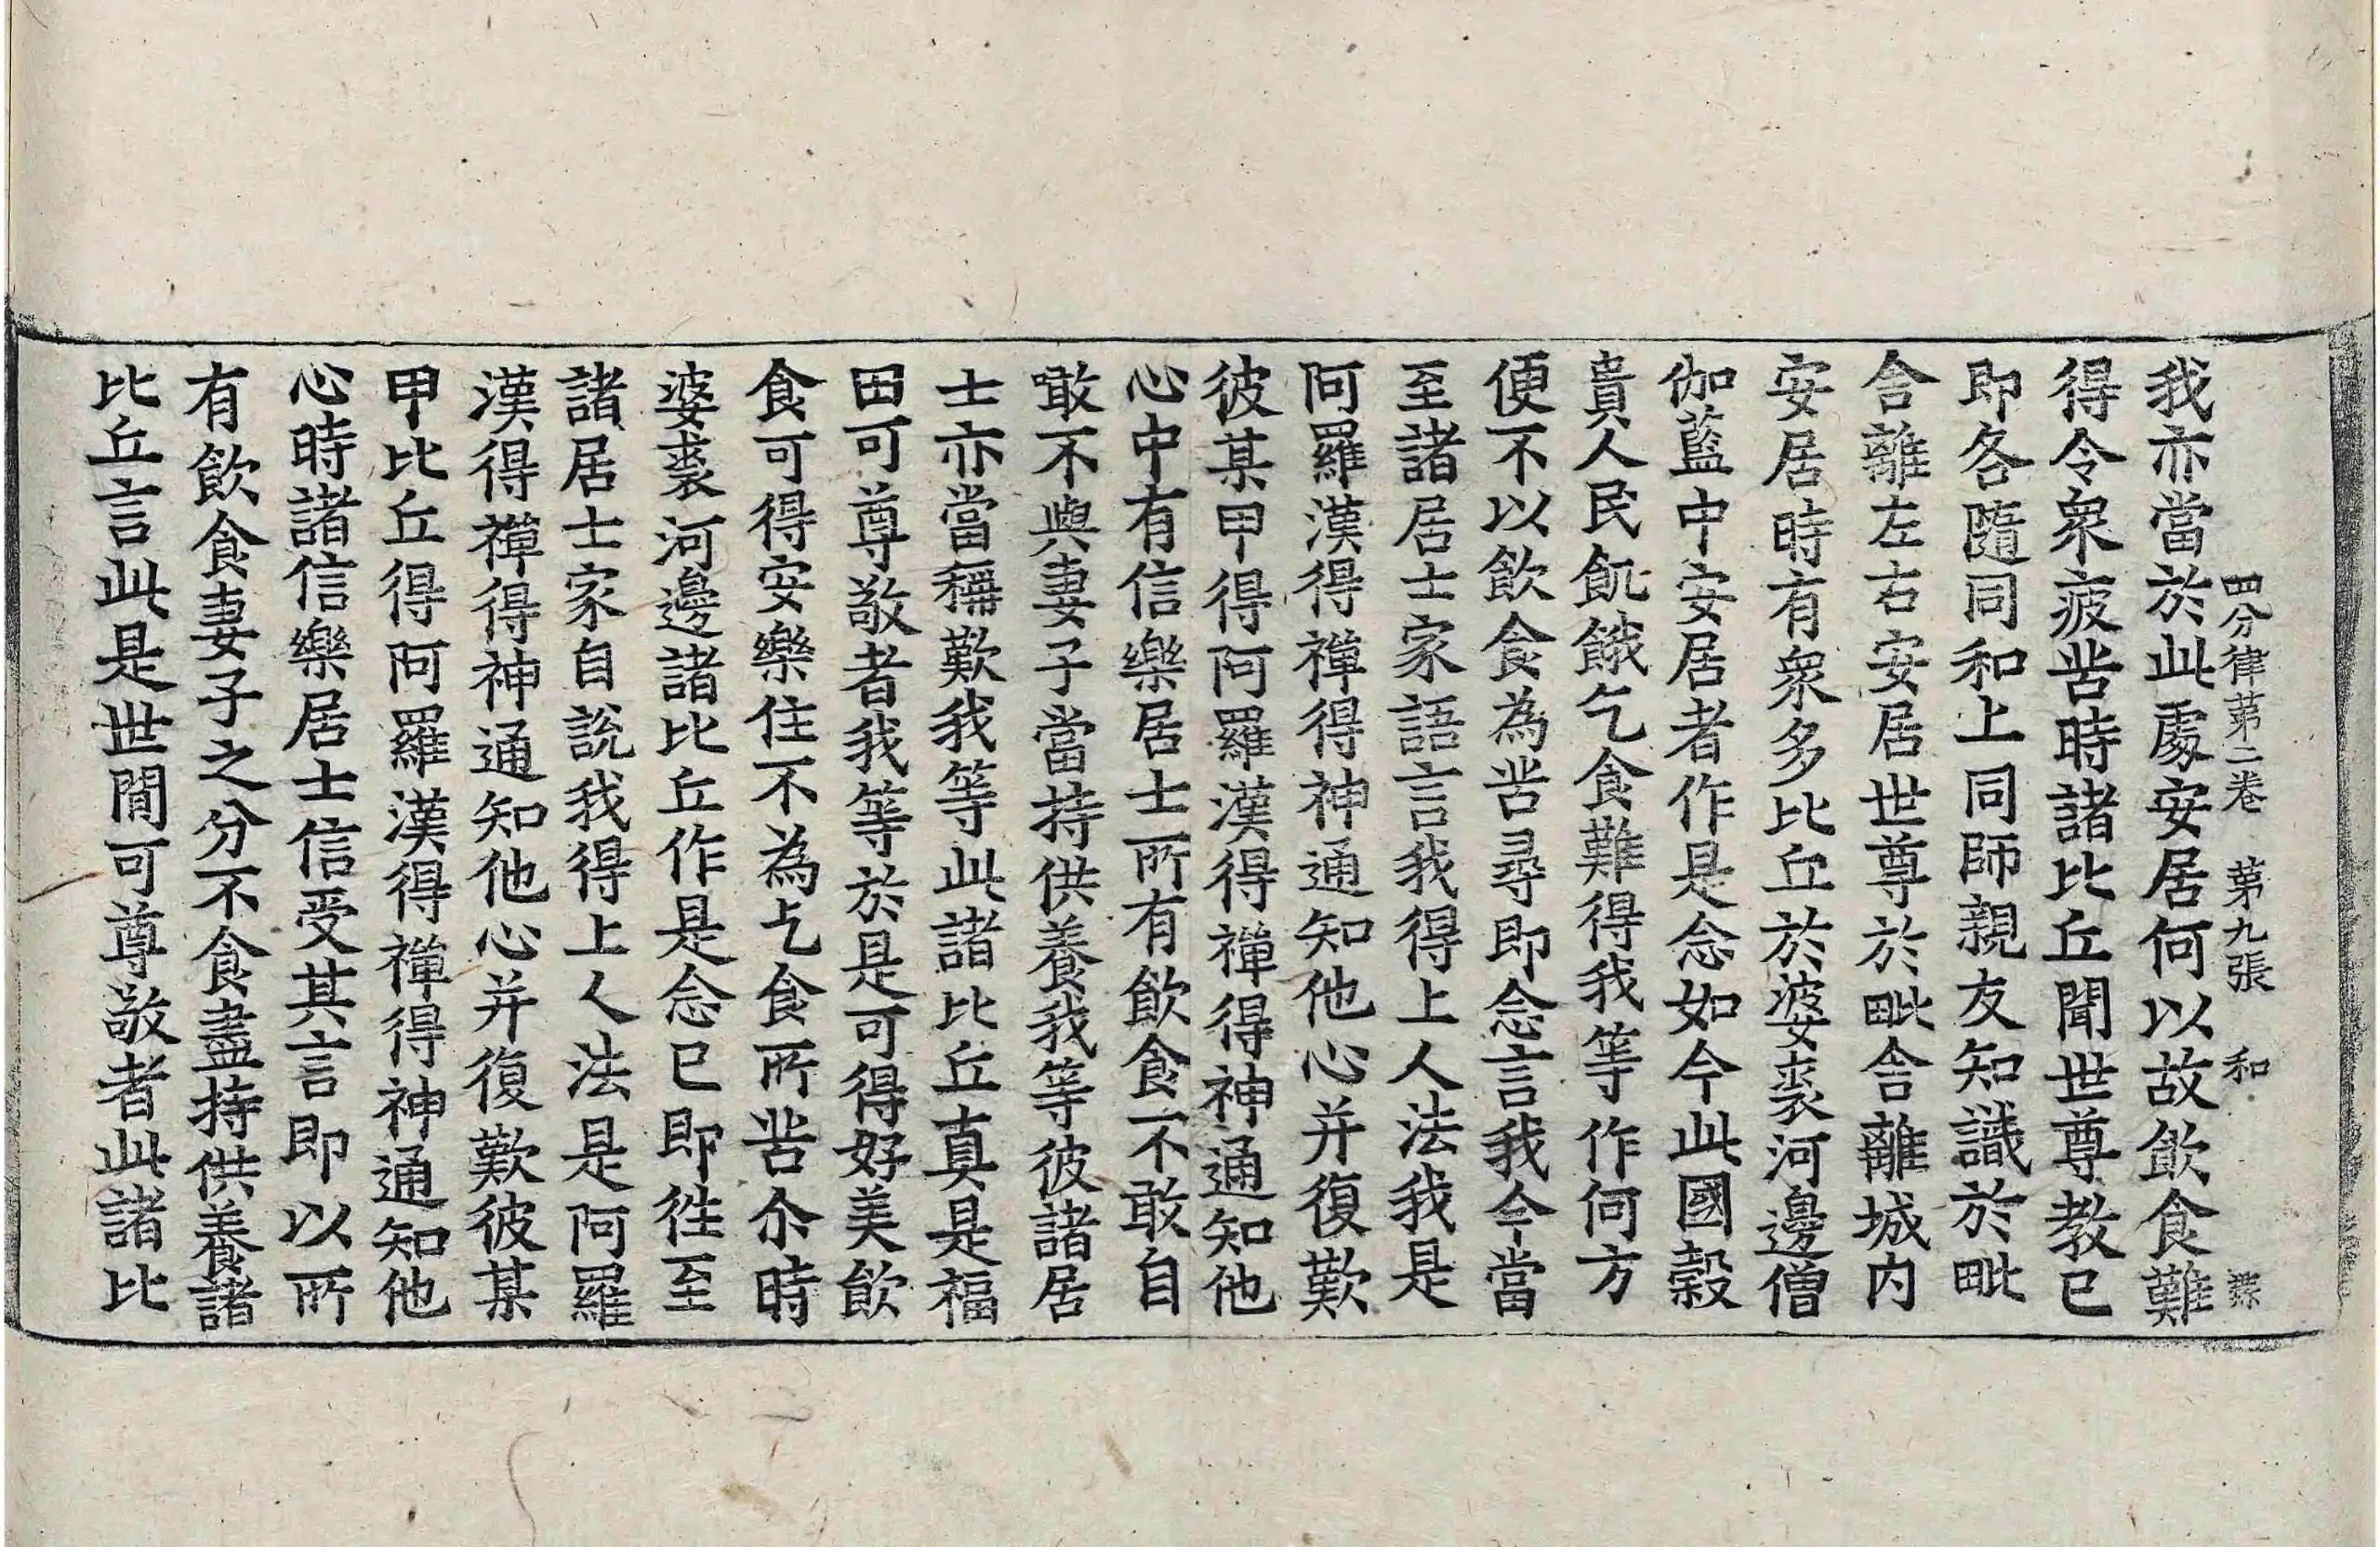 四分律第二卷　第九張　和
我亦當於此處安居何以故飲食難
得令衆疲苦時諸比丘聞世尊教已
即各隨同和上同師親友知識於毗
舍離左右安居世尊於毗舍離城内
安居時有衆多比丘於婆裘河邊僧
伽藍中安居者作是念如今此國穀
貴人民飢餓乞食難得我等作何方
便不以飲食為苦尋即念言我今當
至諸居士家語言我得上人法我是
阿羅漢得禪得神通知他心并復歎
彼某甲得阿羅漢得禪得神通知他
心中有信樂居士所有飲食不敢自
噉不與妻子當持供養我等彼諸居
士亦當稱歎我等此諸比丘真是福
田可尊敬者我等於是可得好美飲
食可得安樂住不為乞食所苦尒時
婆裘河邊諸比丘作是念已即往至
諸居士家自說我得上人法是阿羅
漢得禪得神通知他心并復歎彼某
甲比丘得阿羅漢得禪得神通知他
心時諸信樂居士信受其言即以所
有飲食妻子之分不食盡持供養諸
比丘言此是世閒可尊敬者此諸比